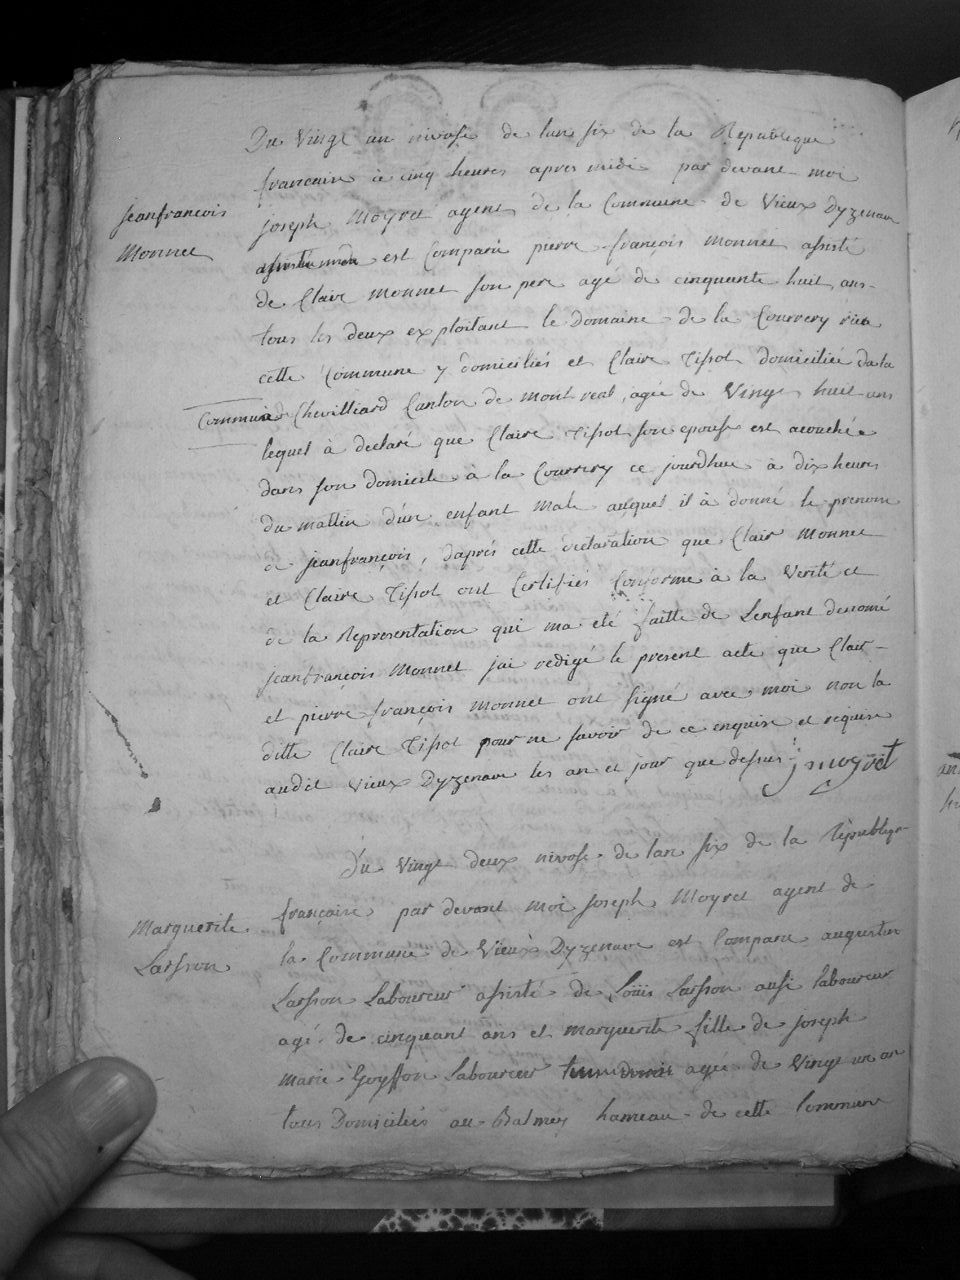 Du Vingt un nivose de lan six de la Republique
francaise à cinq heures apres midi par devant moi
jeanfrancois
Monnet
joseph Moyret agent de la Commune de Vieux Dyzenave
est Comparu pierre françois Monnet assisté
de Clair Monnet son pere agé de cinquante huit ans
tous les deux exploitant le Domaine de la Courrery riere
cette Commune y domiciliés et Claire Tissot domiciliée de la
Commune de Chevilliard Canton de montreal, agée de Vingt huit ans
lequel à declaré que Claire Tissot son epouse est acouchée
dans son domicile à la Courrery ce jourdhui à dix heures
du mattin d'un enfant Male auquel il à donné le prenom
de jeanfrançois, d'aprés cette declaration que Clair Monnet
et Claire Tissot ont Certifiés Conforme à la Verité et
de la Representation qui ma eté faitte de Lenfant denomé
jeanfrançois Monnet jai redigé le present acte que Clair
et pierre françois Monnet ont signé avec moi non la
ditte Claire Tissot pour ne savoir de ce enquise et requise
audit Vieux Dyzenave les an et jour que dessus jmoyret
Du Vingt deux nivose de lan six de la Républiqe
Marguerite
Larsson
française par devant moi joseph Moyret agent de
la Commune de Vieux Dyzenave est Comparu augustin
Larsson Laboureur assisté de Loüis Larsson ausi laboureur
agé de cinquant ans et marguerite fille de joseph
marie Goyffon Laboureur agée de Vingt un an
tous Domiciliés au Balmey hameau de cette Commune